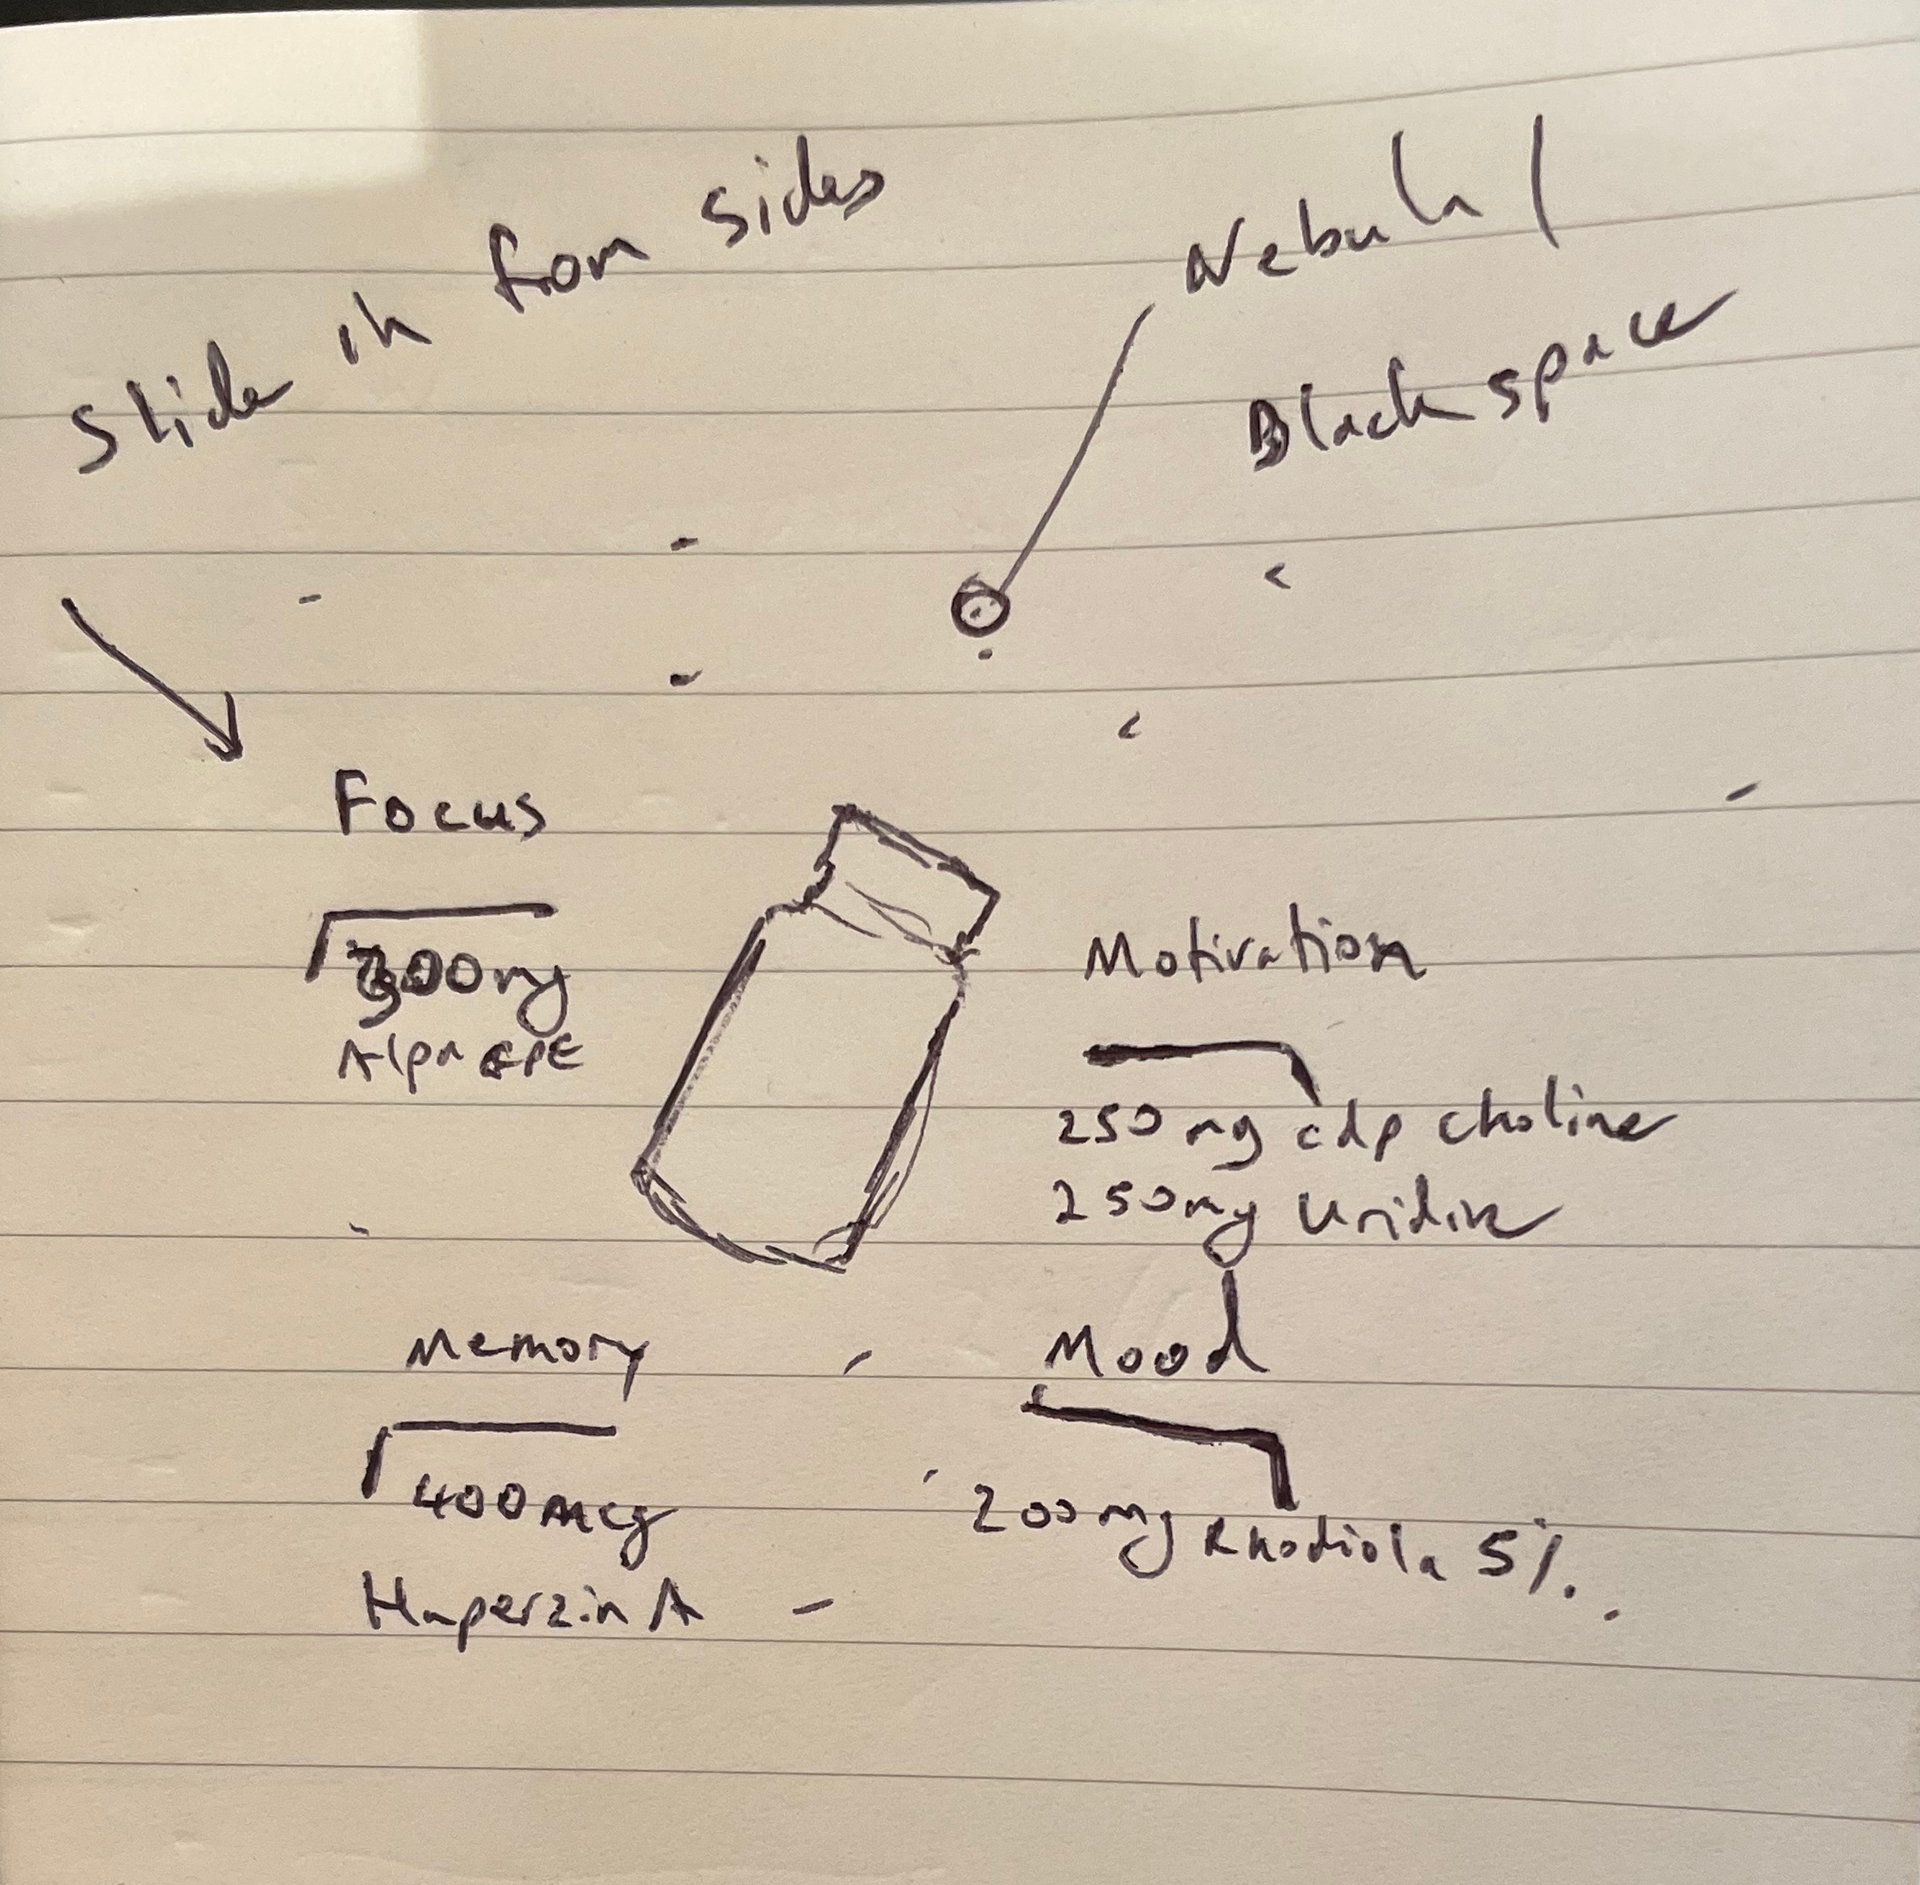 Slide in from sides
Nebula /
Black space
Focus
300mg
Motivation
250mg cdp choline
250mg Uridine
Memory
400mcg
Huperzin A
Mood
200mg Rhodiola 5%.